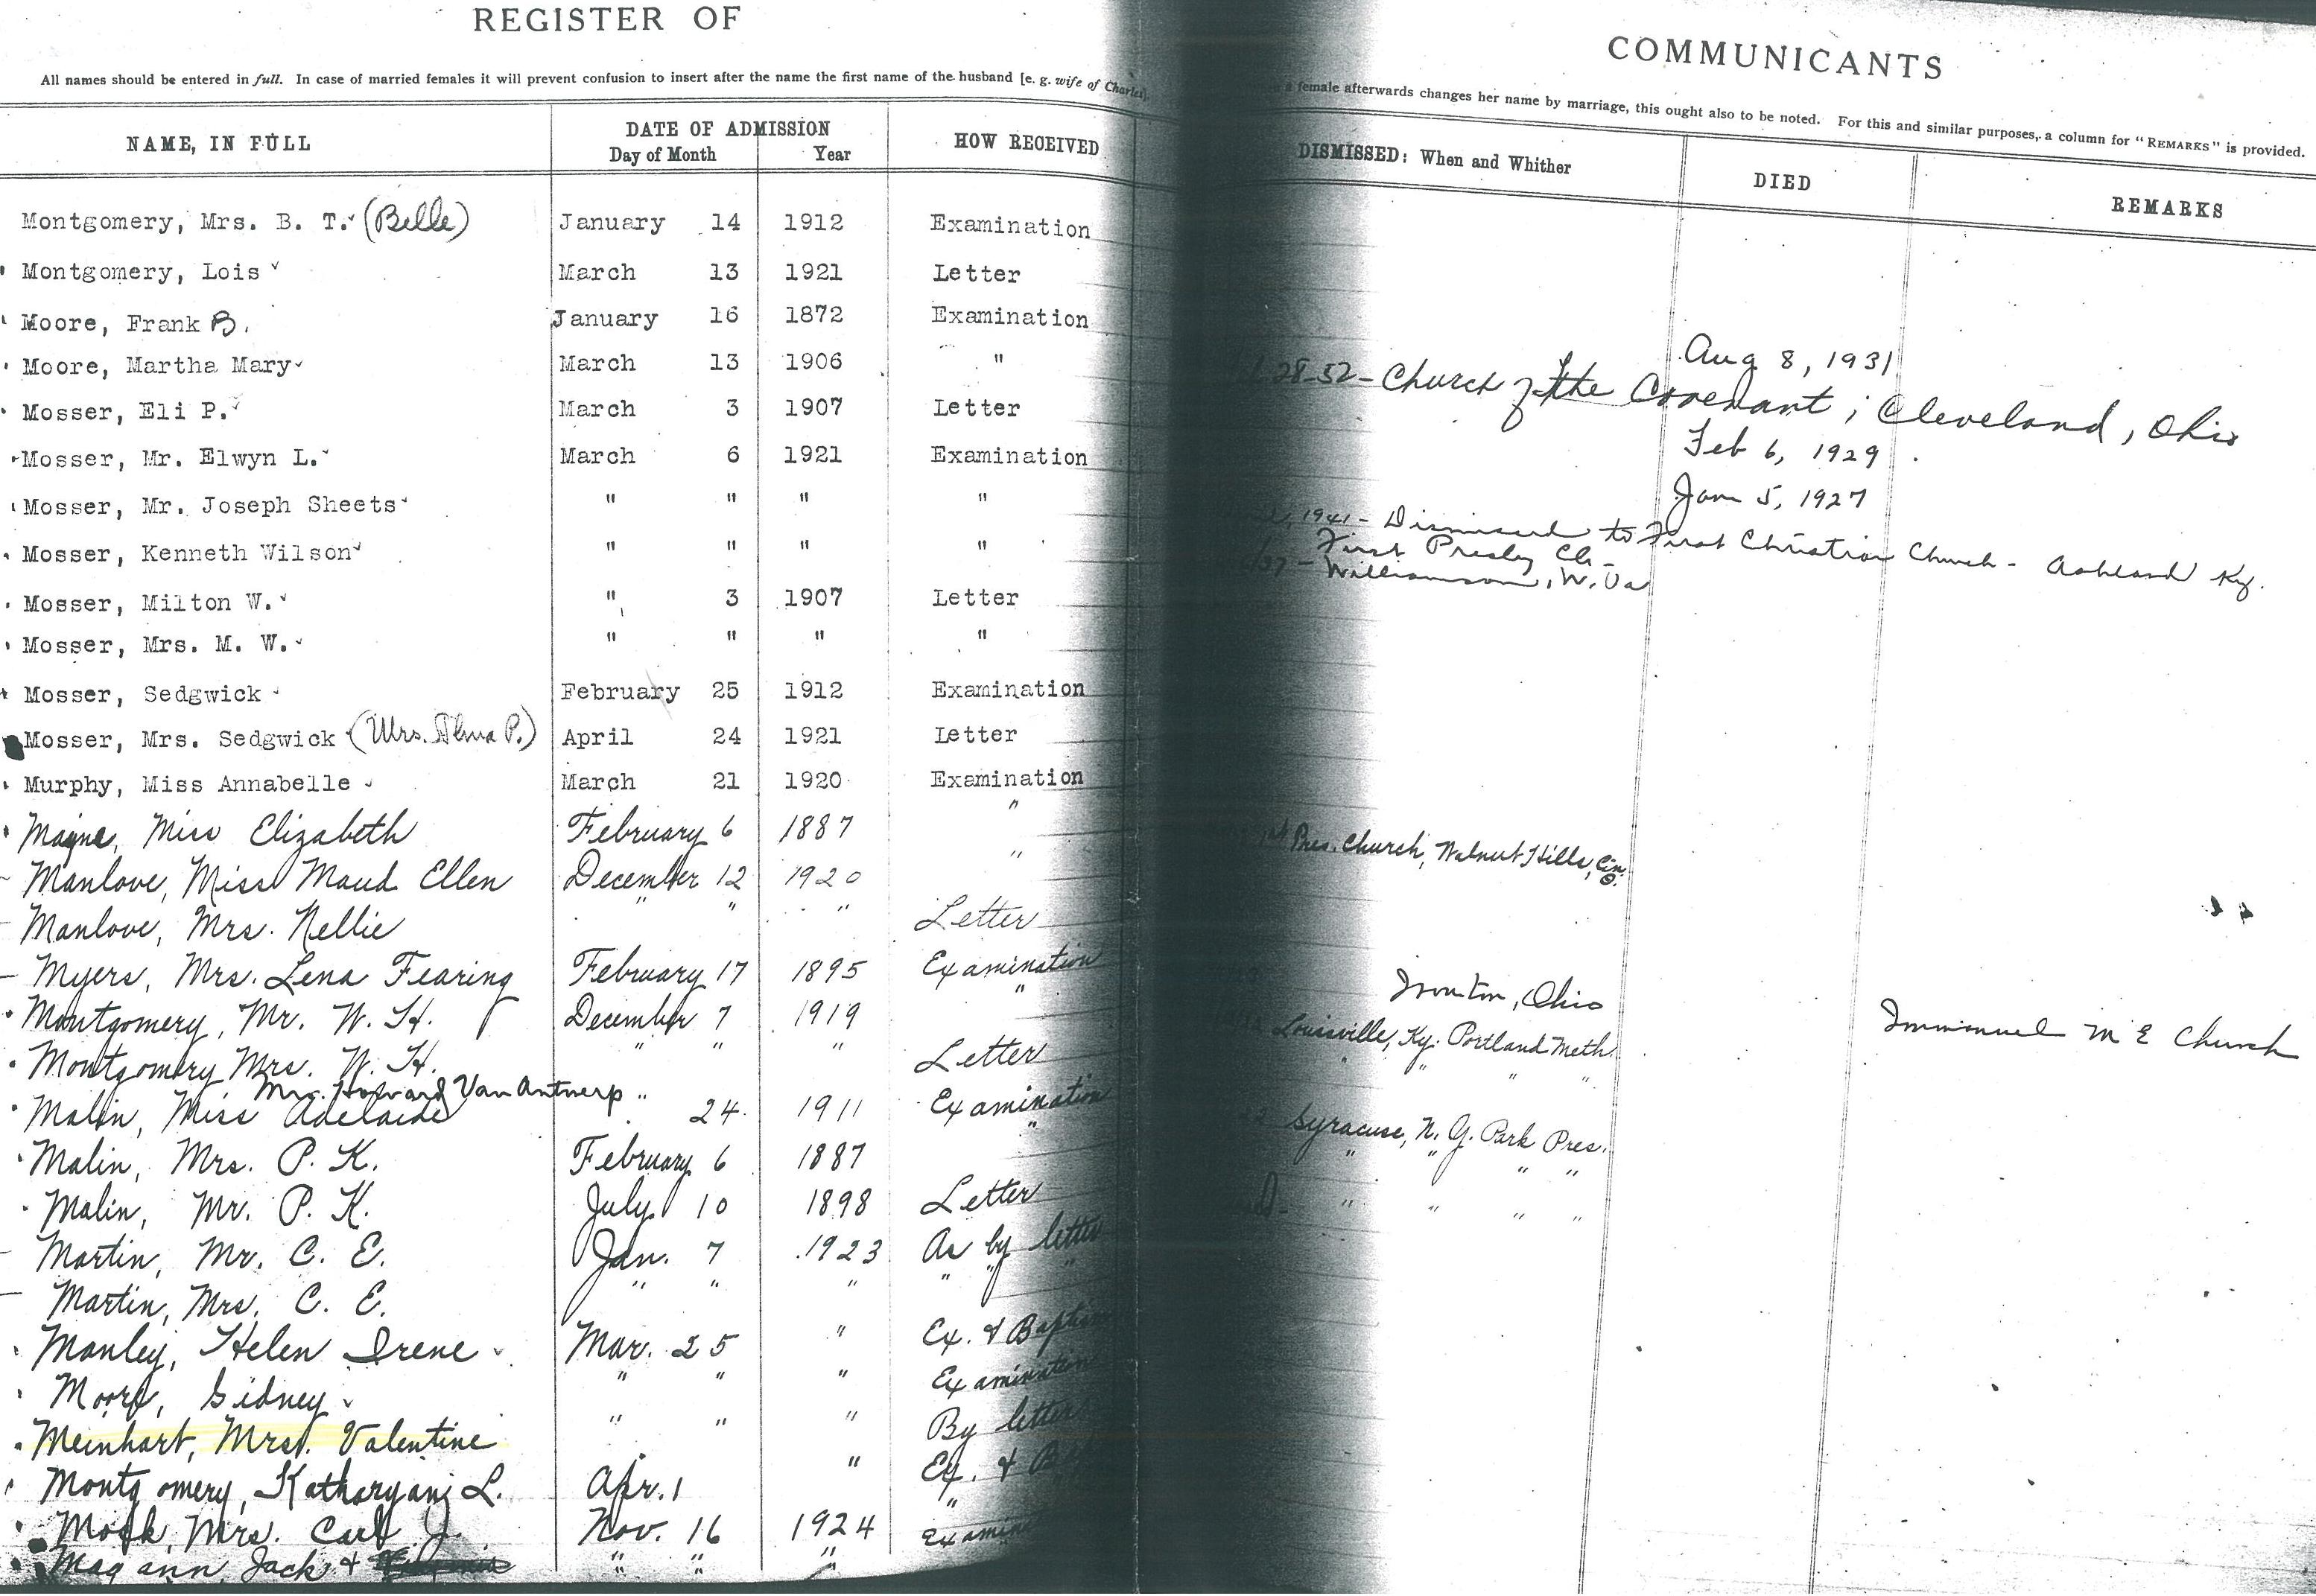 REGISTER OF
All names should be entered in full. In case of married females it will prevent confusion to insert after the name the first name of the husband [e. g. wife of Charles].
NAME, IN FULL DATE OF ADMISSION HOW RECEIVED
Day of Month Year
Montgomery, Mrs. B. T. (Belle) January 14 1912 Examination
Montgomery, Lois March 13 1921 Letter
Moore, Frank B. January 16 1872 Examination
Moore, Martha Mary March 13 1906 "
Mosser, Eli P. March 3 1907 Letter
Mosser, Mr. Elwyn L. March 6 1921 Examination
Mosser, Mr. Joseph Sheets " " " "
Mosser, Kenneth Wilson " " " "
Mosser, Milton W. " 3 1907 Letter
Mosser, Mrs. M. W. " " " "
Mosser, Sedgwick February 25 1912 Examination
Mosser, Mrs. Sedgwick (Mrs. Alma P.) April 24 1921 Letter
Murphy, Miss Annabelle March 21 1920 Examination
Mayne, Miss Elizabeth February 6 1887 "
Manlove, Miss Maud Ellen December 12 1920 "
Manlove, Mrs. Nellie " " " Letter
Myers, Mrs. Lena Fearing February 17 1895 Examination
Montgomery, Mr. W. H. December 7 1919 "
Montgomery Mrs. W. H. " " " Letter
Mrs. Howard Van Antwerp
Malin, Miss Adelaide " 24 1911 Examination
Malin, Mrs. P. K. February 6 1887 "
Malin, Mr. P. K. July 10 1898 Letter
Martin, Mr. C. E. Jan. 7 1923 As by letter
Martin, Mrs. C. E. " " " " " "
Manley, Helen Irene Mar. 25 " Ex. & Baptism
Moore, Sidney " " " Examination
Meinhart, Mrs. Valentine " " " By letter
Montgomery, L. Apr. 1 " Ex. &
Mrs. Carl J. Nov. 16 1924 "
Magann, Jack & " " "
COMMUNICANTS
a female afterwards changes her name by marriage, this ought also to be noted. For this and similar purposes, a column for "REMARKS" is provided.
DISMISSED: When and Whither DIED REMARKS
Aug 8, 1931
28-52 - Church of the Covenant; Cleveland, Ohio
Feb 6, 1929
Jan 5, 1927
1941 - Dismissed to First Christian Church - Ashland Ky.
First Presby Ch -
Williamson, W. Va
Pres. Church, Walnut Hills, Cin. O.
Ironton, Ohio
Louisville, Ky. Portland Meth. Immanuel M E Church
" " "
Syracuse, N. Y. Park Pres.
" " " "
" " " "